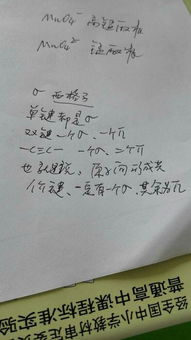 MnO₄⁻ 高锰酸根
MnO₄²⁻ 锰酸根
σ 西格马
单键都是σ
双键一个σ、一个π
-C≡C- 一个σ、二个π
也就是说，原子间形成共
价键、一定有一个σ，其余为π
经全国中小学教材审定委
普通高中课程标准实验